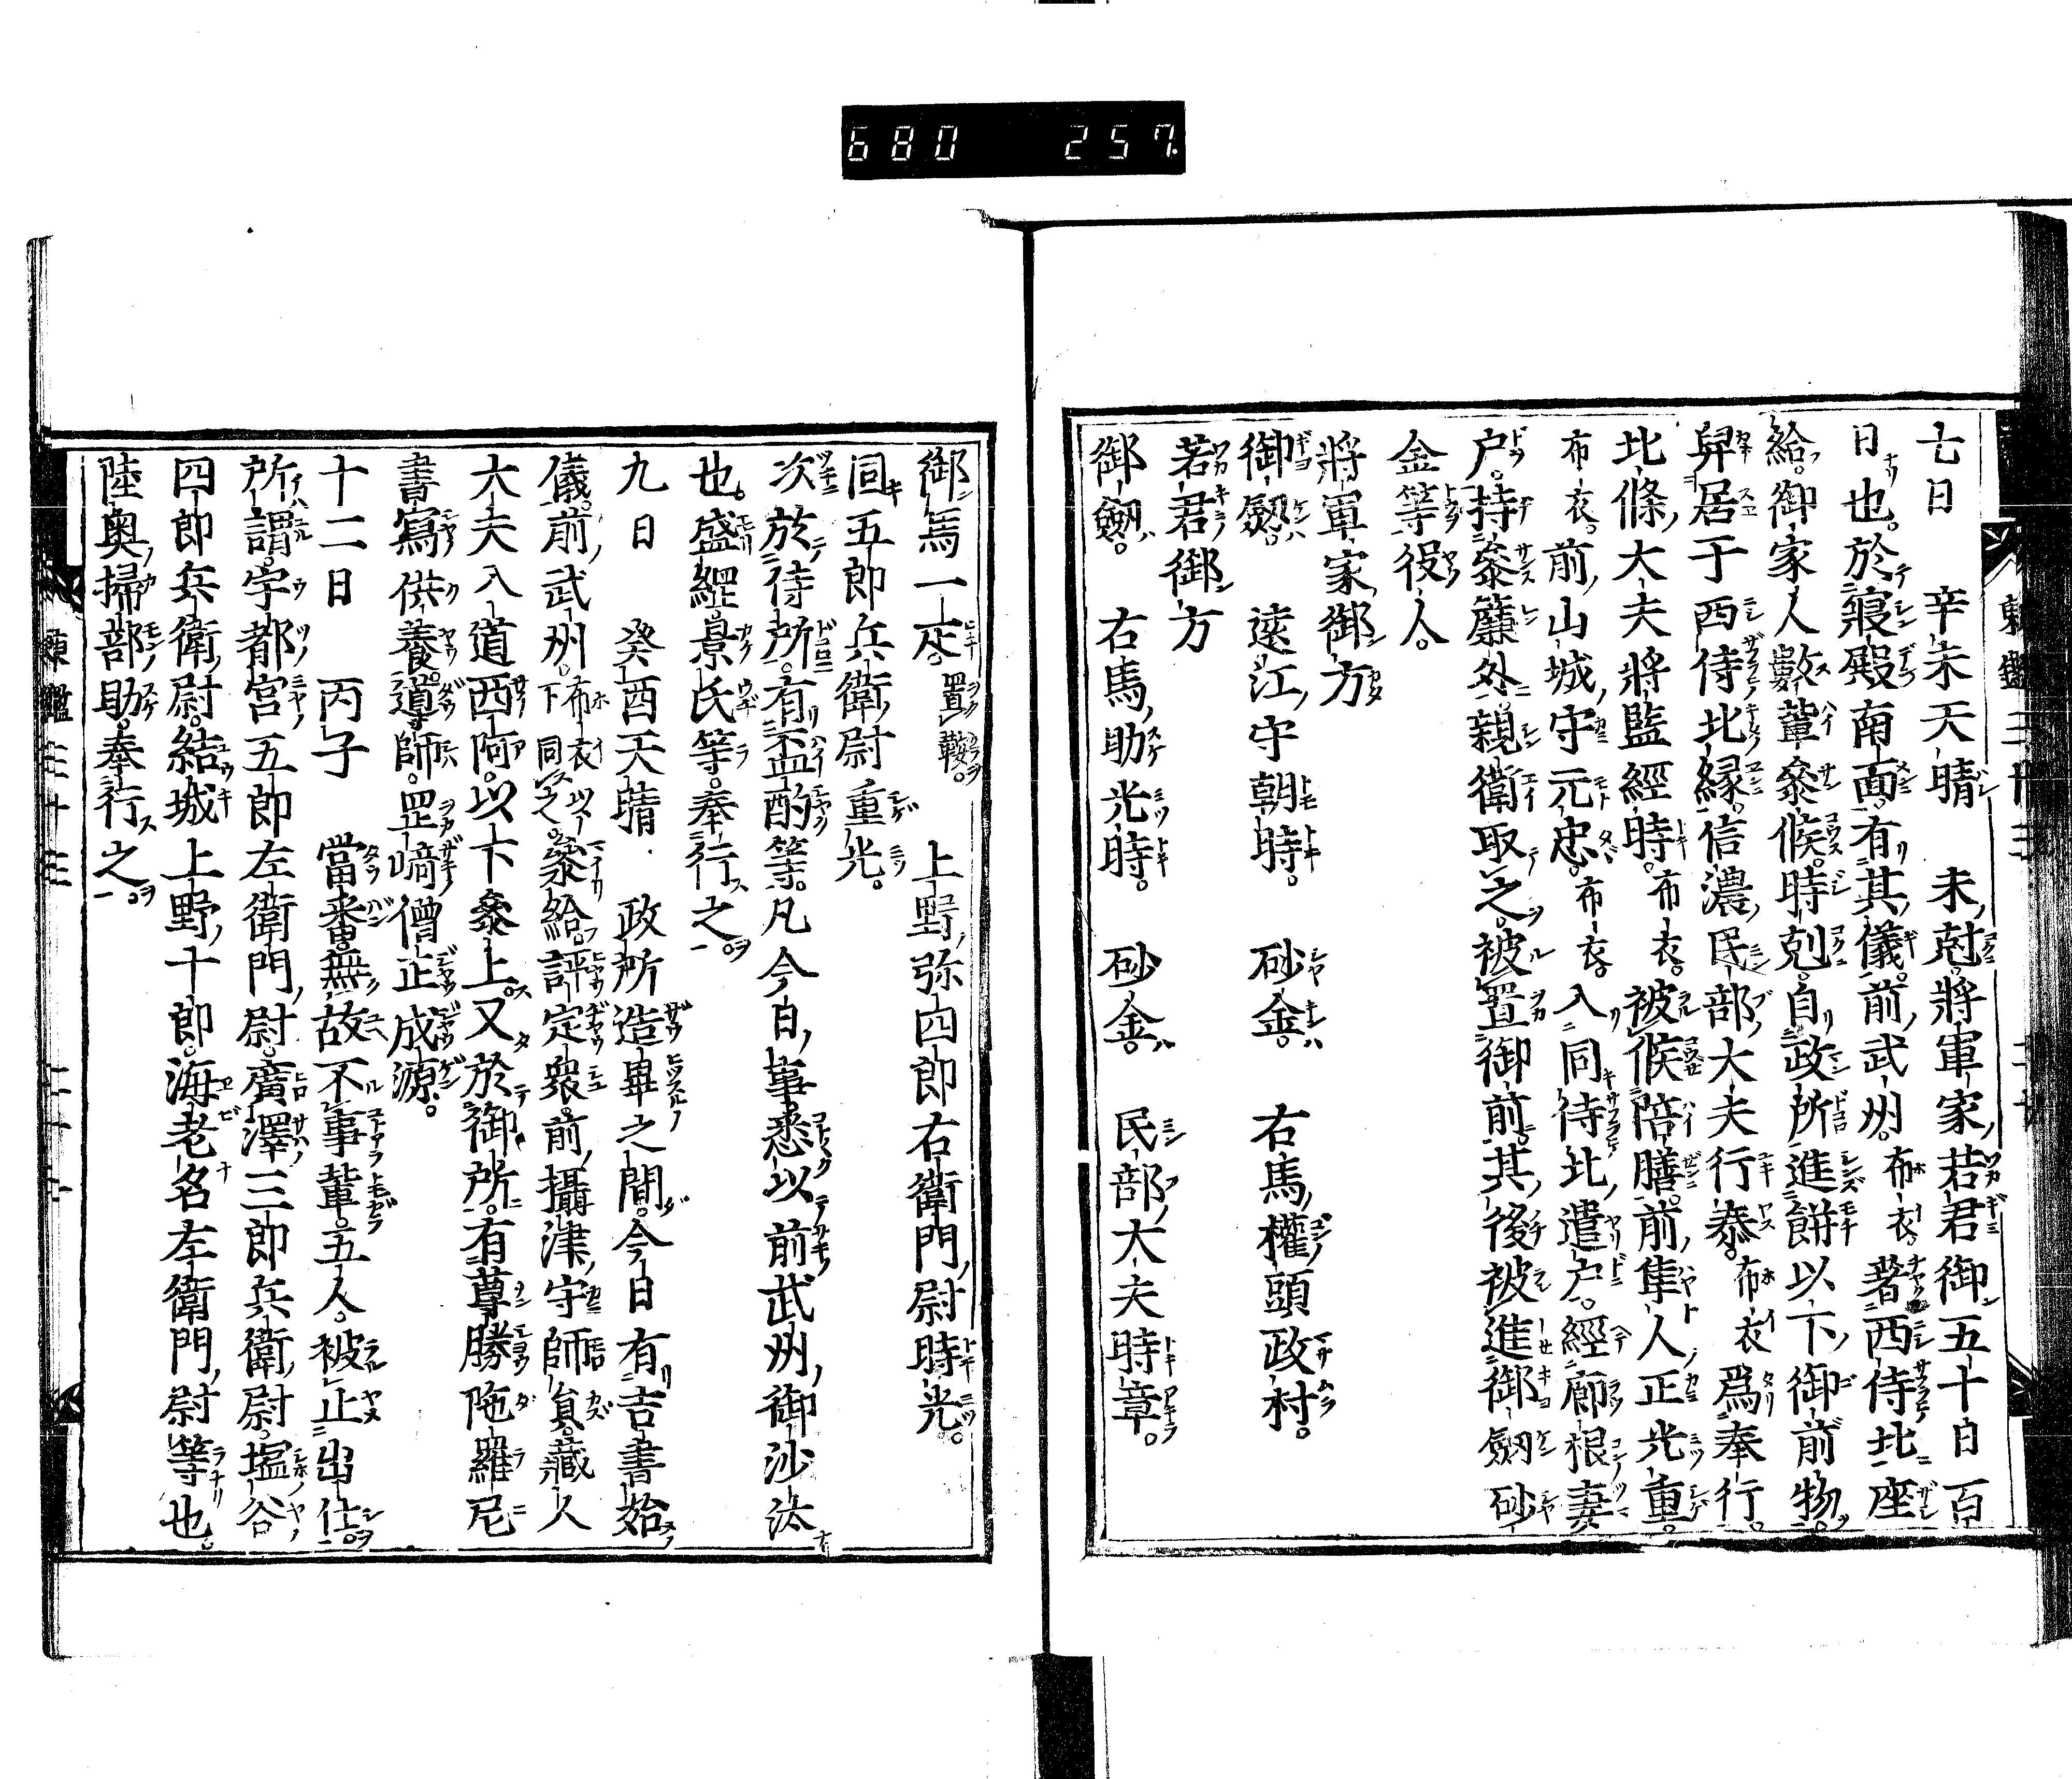 680 257.
七日 辛未天晴 未尅將軍家若君御五十日百
日也。於寢殿南面。有其儀。前武州。布衣。著西侍北座
給。御家人數輩參候。時剋。自政所進餅以下御前物。
舁居于西侍北緣。信濃民部大夫行泰。布衣爲奉行。
北條大夫將監經時。布衣。被候陪膳。前隼人正光重。
布衣。前山城守元忠。布衣。入同侍北遣戸。經廊根妻
戸。持參簾外。親衛取之。被置御前。其後被進御劔砂
金等役人。
將軍家御方
御劔。 遠江守朝時。 砂金。 右馬權頭政村。
若君御方
御劔。 右馬助光時。 砂金。 民部大夫時章。
御馬一疋。置鞍。 上野弥四郎右衛門尉時光。
同五郎兵衛尉重光。
次於侍所。有盃酌等。凡今日事悉以前武州御沙汰
也。盛經景氏等。奉行之。
九日 癸酉天晴 政所造畢之間。今日有吉書始
儀。前武州。布衣以下同之。參給。評定衆。前攝津守師員。藏人
大夫入道西阿。以下參上。又於御所。有尊勝陁羅尼
書寫供養。導師。岡﨑僧正成源。
十二日 丙子 當番無故不事輩。五人。被止出仕。
所謂。宇都宮五郎左衛門尉。廣澤三郎兵衛尉。塩谷
四郎兵衛尉。結城上野十郎。海老名左衛門尉等也。
陸奥掃部助。奉行之。